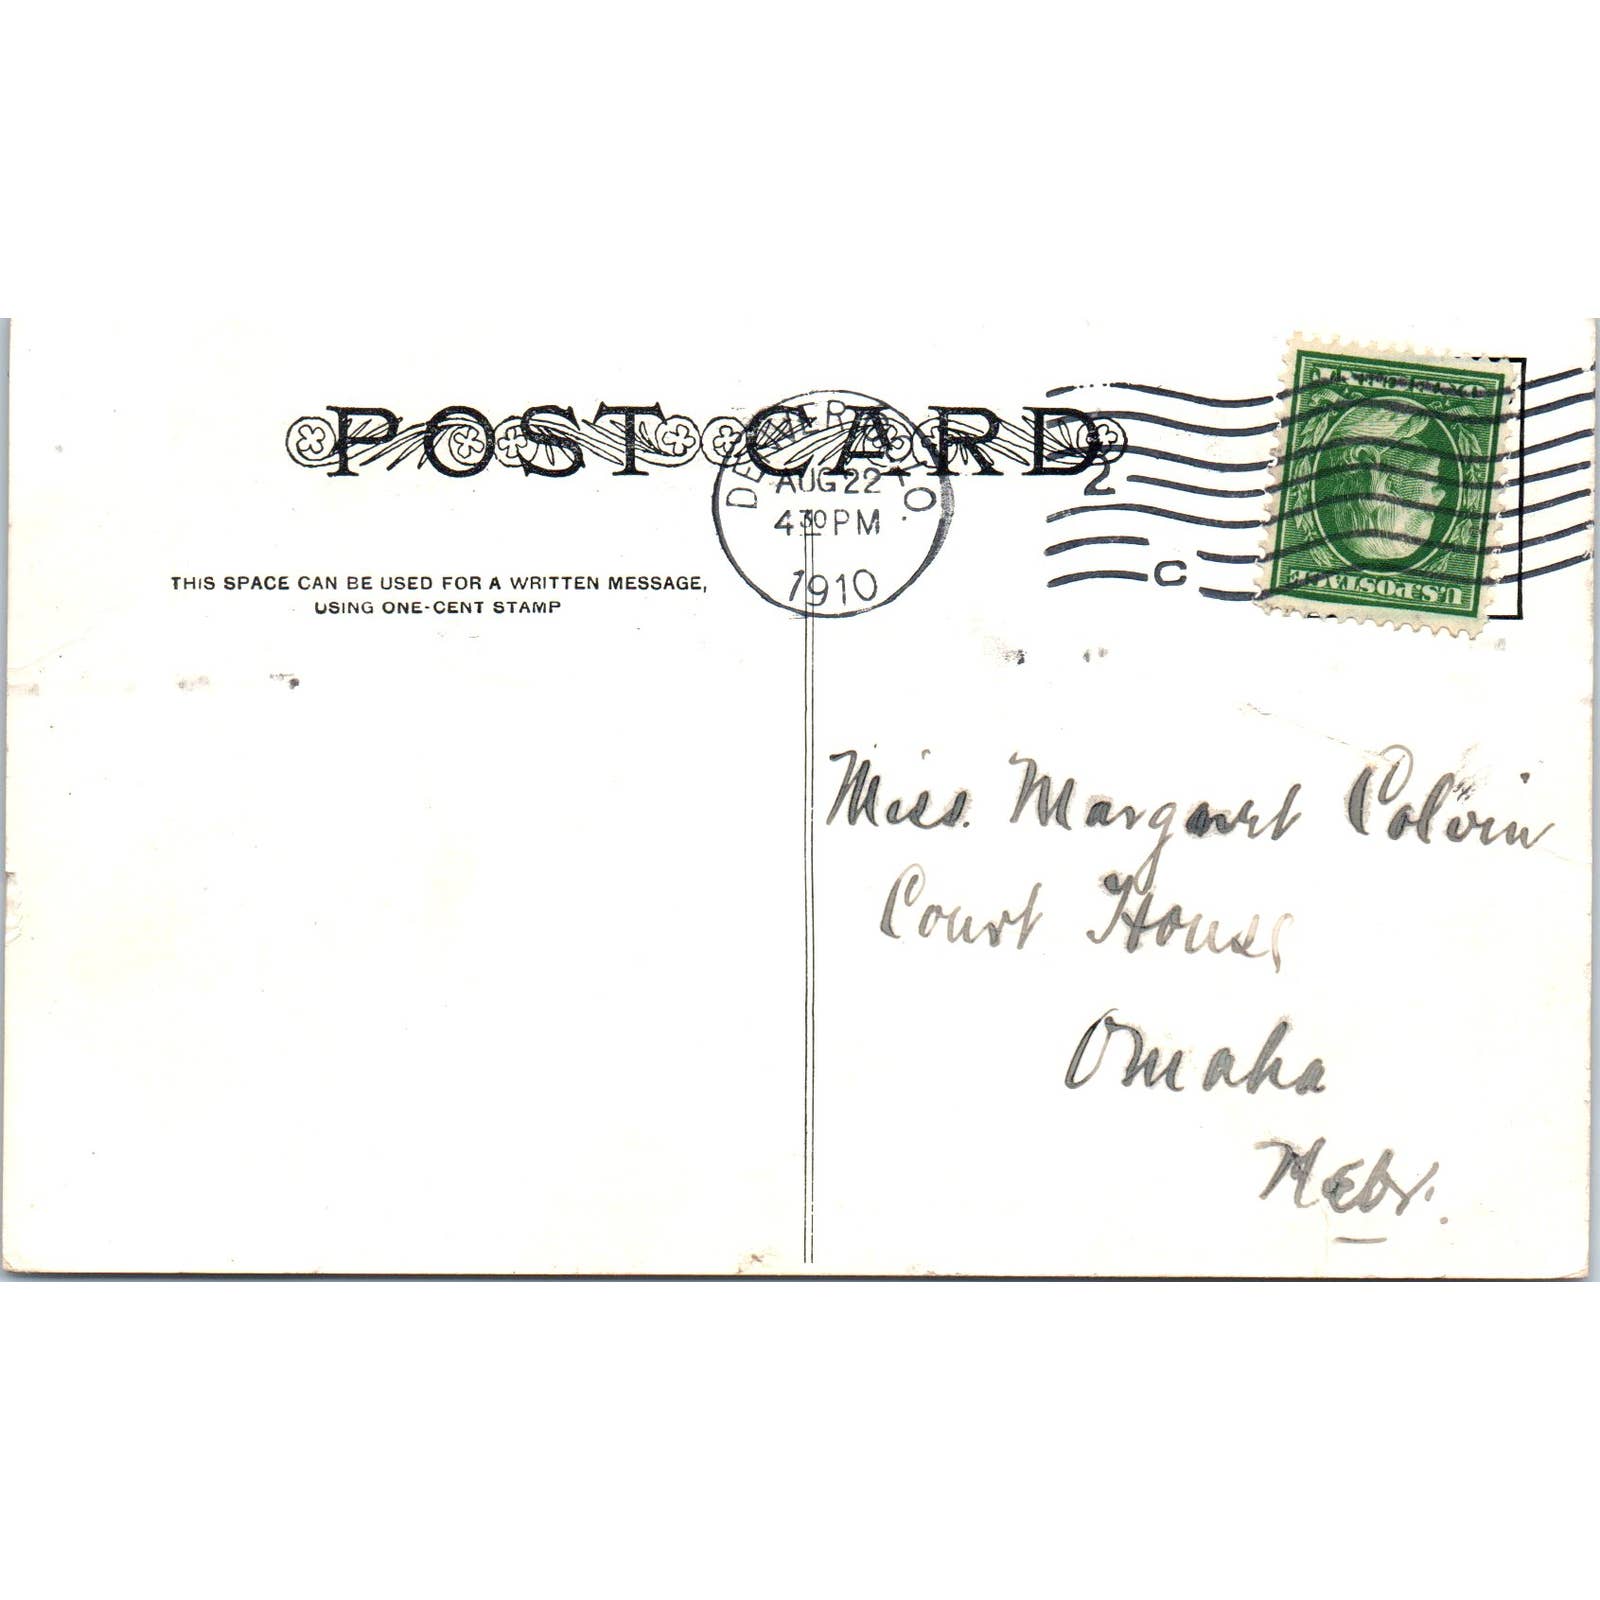 POST CARD
DENVER
AUG 22
4 30 PM
1910
2
C
U.S. POSTAGE
THIS SPACE CAN BE USED FOR A WRITTEN MESSAGE,
USING ONE-CENT STAMP
Miss. Margaret Colvin
Court House
Omaha
Nebr.